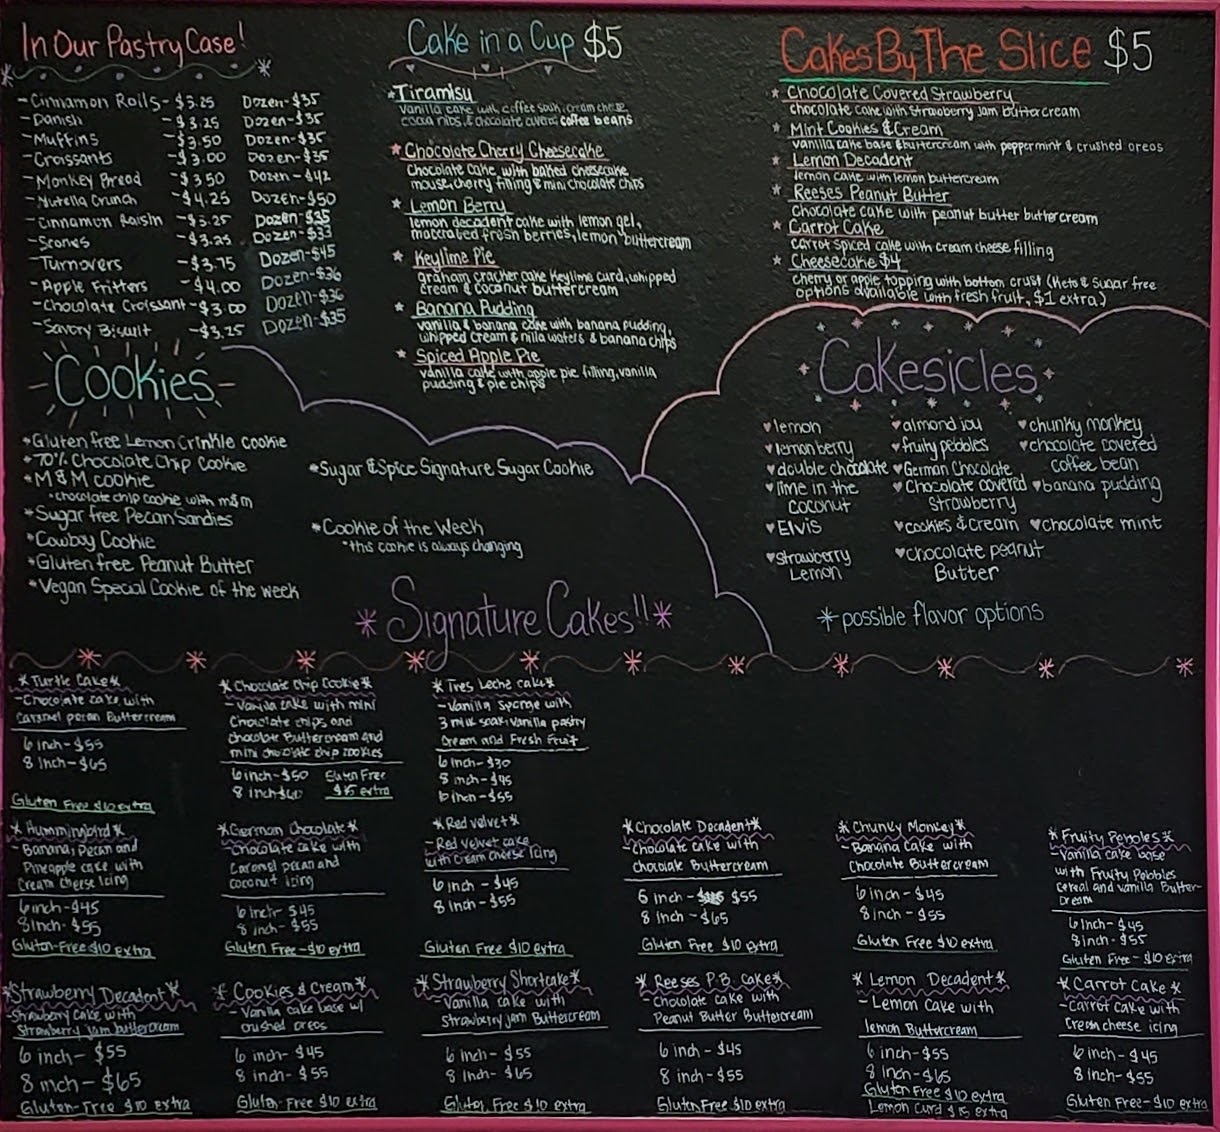 In Our Pastry Case!
-Cinnamon Rolls - $3.25 Dozen-$35
-Danish - $3.25 Dozen-$35
-Muffins - $3.50 Dozen-$35
-Croissants - $3.00 Dozen-$35
-Monkey Bread - $3.50 Dozen-$42
-Nutella Crunch - $4.25 Dozen-$50
-Cinnamon Raisin - $3.25 Dozen-$35
-Scones - $3.25 Dozen-$33
-Turnovers - $3.75 Dozen-$45
-Apple Fritters - $4.00 Dozen-$36
-Chocolate Croissant - $3.00 Dozen-$36
-Savory Biscuit - $3.25 Dozen-$35
Cake in a Cup $5
*Tiramisu
vanilla cake with coffee soak, cream cheese
cocoa nibs, & chocolate covered coffee beans
*Chocolate Cherry Cheesecake
chocolate cake, with baked cheesecake
mouse, cherry filling & mini chocolate chips
*Lemon Berry
lemon decadent cake with lemon gel,
macerated fresh berries, lemon buttercream
*Keylime Pie
graham cracker cake Keylime curd, whipped
cream & coconut buttercream
*Banana Pudding
vanilla & banana cake with banana pudding,
whipped cream & nilla wafers & banana chips
*Spiced Apple Pie
vanilla cake with apple pie filling, vanilla
pudding & pie chips
Cakes By The Slice $5
*Chocolate Covered Strawberry
chocolate cake with strawberry jam buttercream
*Mint Cookies & Cream
vanilla cake base & buttercream with peppermint & crushed oreos
*Lemon Decadent
lemon cake with lemon buttercream
*Reeses Peanut Butter
Chocolate cake with peanut butter buttercream
*Carrot Cake
carrot spiced cake with cream cheese filling
*Cheesecake $4
cherry or apple topping with bottom crust (Keto & Sugar free
options available with fresh fruit, $1 extra)
Cookies
*Gluten free Lemon Crinkle Cookie
*70% Chocolate Chip Cookie
*M&M cookie
*chocolate chip cookie with m&m
*Sugar free Pecan Sandies
*Cowboy Cookie
*Gluten free Peanut Butter
*Vegan Special Cookie of the week
*Sugar & Spice Signature Sugar Cookie
*Cookie of the Week
*this cookie is always changing
Cakesicles
♥lemon ♥almond joy ♥chunky monkey
♥lemon berry ♥fruity pebbles ♥chocolate covered
coffee bean
♥double chocolate ♥German Chocolate
♥lime in the ♥Chocolate covered ♥banana pudding
coconut Strawberry
♥Elvis ♥cookies & cream ♥chocolate mint
♥strawberry ♥chocolate peanut
Lemon Butter
*possible flavor options
*Signature Cakes!!*
*Turtle Cake*
-Chocolate cake with
Caramel pecan Buttercream
6 inch-$55
8 inch-$65
Gluten Free $10 extra
*Chocolate Chip Cookie*
-Vanilla cake with mini
Chocolate chips and
chocolate Buttercream and
mini chocolate chip cookies
6 inch-$50 Gluten Free
8 inch $60 $15 extra
*Tres Leche cake*
-Vanilla Sponge with
3 milk soak, vanilla pastry
Cream and Fresh Fruit
6 inch-$30
8 inch-$45
10 inch-$55
*Hummingbird*
-Banana, Pecan and
Pineapple cake with
Cream Cheese Icing
6 inch-$45
8 inch-$55
Gluten-Free $10 extra
*German Chocolate*
-Chocolate cake with
Caramel pecan and
coconut icing
6 inch-$45
8 inch-$55
Gluten Free-$10 extra
*Red velvet*
-Red Velvet cake
with Cream cheese Icing
6 inch-$45
8 inch-$55
Gluten Free $10 extra
*Chocolate Decadent*
-Chocolate cake with
chocolate Buttercream
6 inch- $55
8 inch-$65
Gluten Free $10 extra
*Chunky Monkey*
-Banana Cake with
Chocolate Buttercream
6 inch-$45
8 inch-$55
Gluten Free $10 extra
*Fruity Pebbles*
-Vanilla cake base
with Fruity Pebbles
Cereal and vanilla Butter-
Cream
6 inch-$45
8 inch-$55
Gluten Free-$10 extra
*Strawberry Decadent*
-Strawberry Cake with
Strawberry jam buttercream
6 inch-$55
8 inch-$65
Gluten-Free $10 extra
*Cookies & Cream*
-Vanilla cake base w/
crushed oreos
6 inch-$45
8 inch-$55
Gluten-Free $10 extra
*Strawberry Shortcake*
-Vanilla cake with
Strawberry jam Buttercream
6 inch-$55
8 inch-$65
Gluten Free $10 extra
*Reeses P.B. Cake*
-Chocolate cake with
Peanut Butter Buttercream
6 inch-$45
8 inch-$55
Gluten Free $10 extra
*Lemon Decadent*
-Lemon Cake with
lemon Buttercream
6 inch-$55
8 inch-$65
Gluten Free $10 extra
Lemon Curd $15 extra
*Carrot Cake*
-Carrot Cake with
Cream cheese icing
6 inch-$45
8 inch-$55
Gluten Free-$10 extra